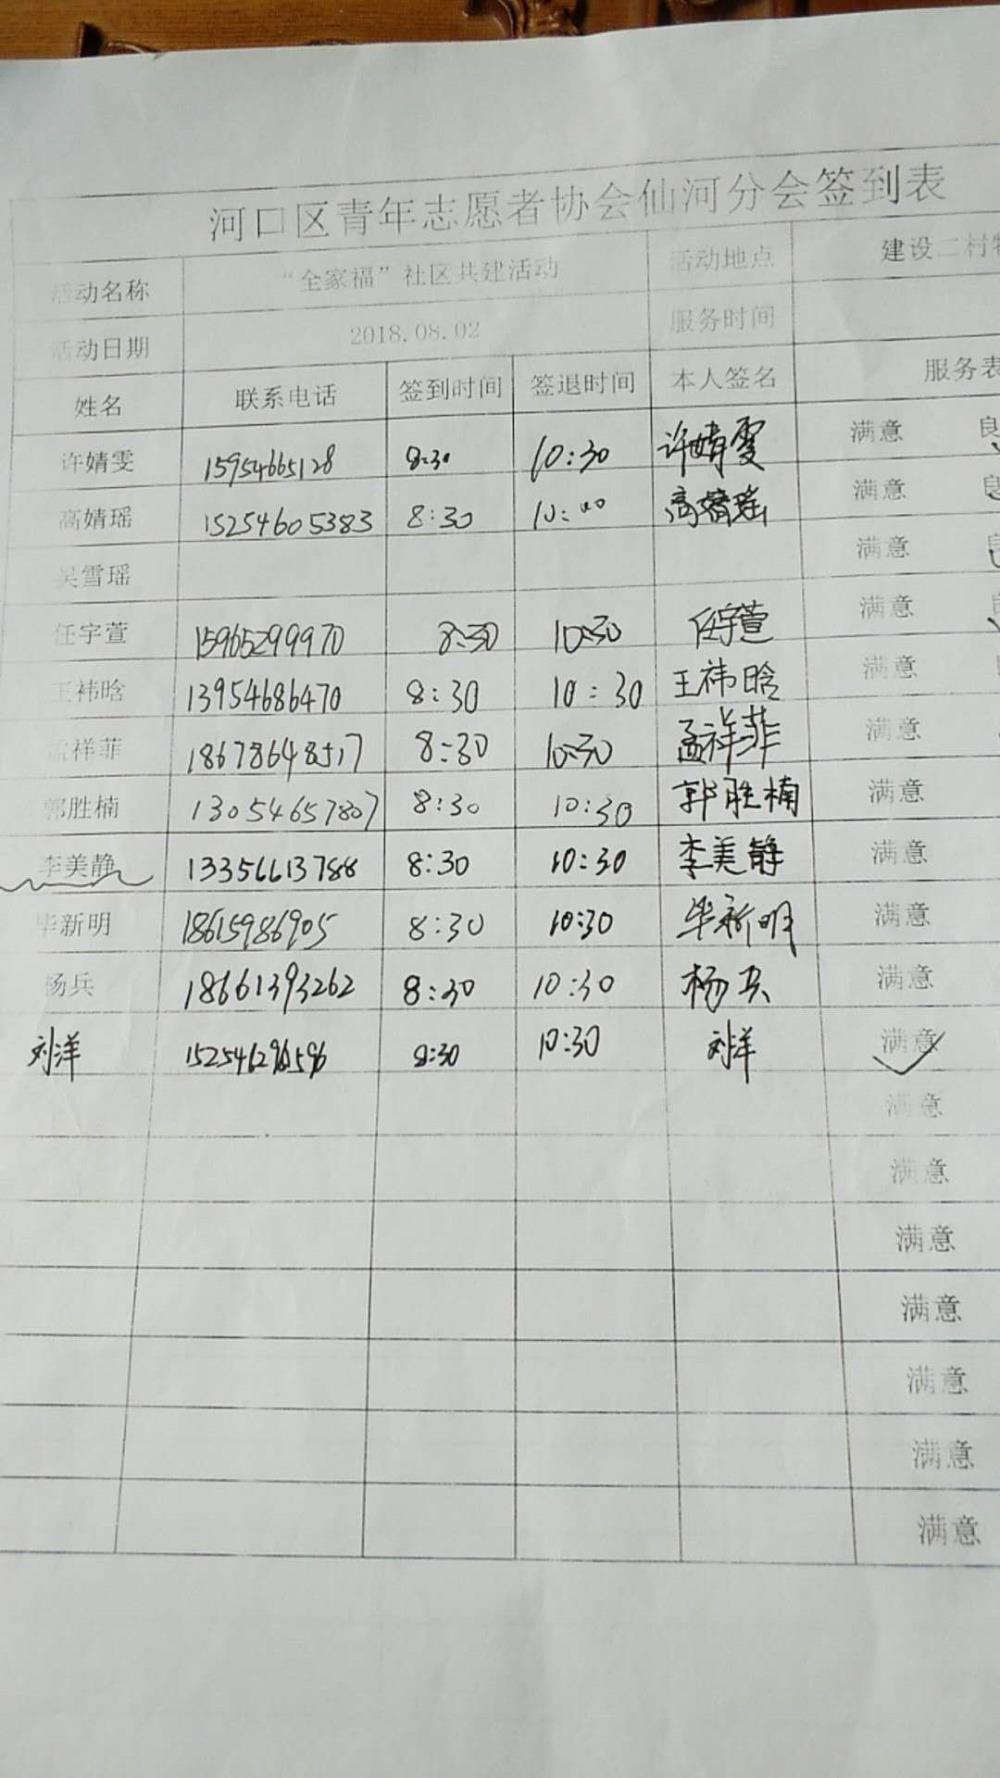 河口区青年志愿者协会仙河分会签到表
活动名称 “全家福”社区共建活动 活动地点 建设二村
活动日期 2018.08.02 服务时间
姓名 联系电话 签到时间 签退时间 本人签名 服务表
许婧雯 15954665128 8:30 10:30 许婧雯 满意 良
高婧瑶 15254605383 8:30 高婧瑶 满意 良
吴雪瑶 满意 良
任宇萱 15965299970 8:30 10:30 任宇萱 满意
王祎晗 13954686470 8:30 10:30 王祎晗 满意
孟祥菲 18678648517 8:30 10:30 孟祥菲 满意
郭胜楠 13054657807 8:30 10:30 郭胜楠 满意
李美静 13356613788 8:30 10:30 李美静 满意
毕新明 18615986905 8:30 10:30 毕新明 满意
杨兵 18661393262 8:30 10:30 杨兵 满意
刘洋 8:30 10:30 刘洋 满意
满意
满意
满意
满意
满意
满意
满意